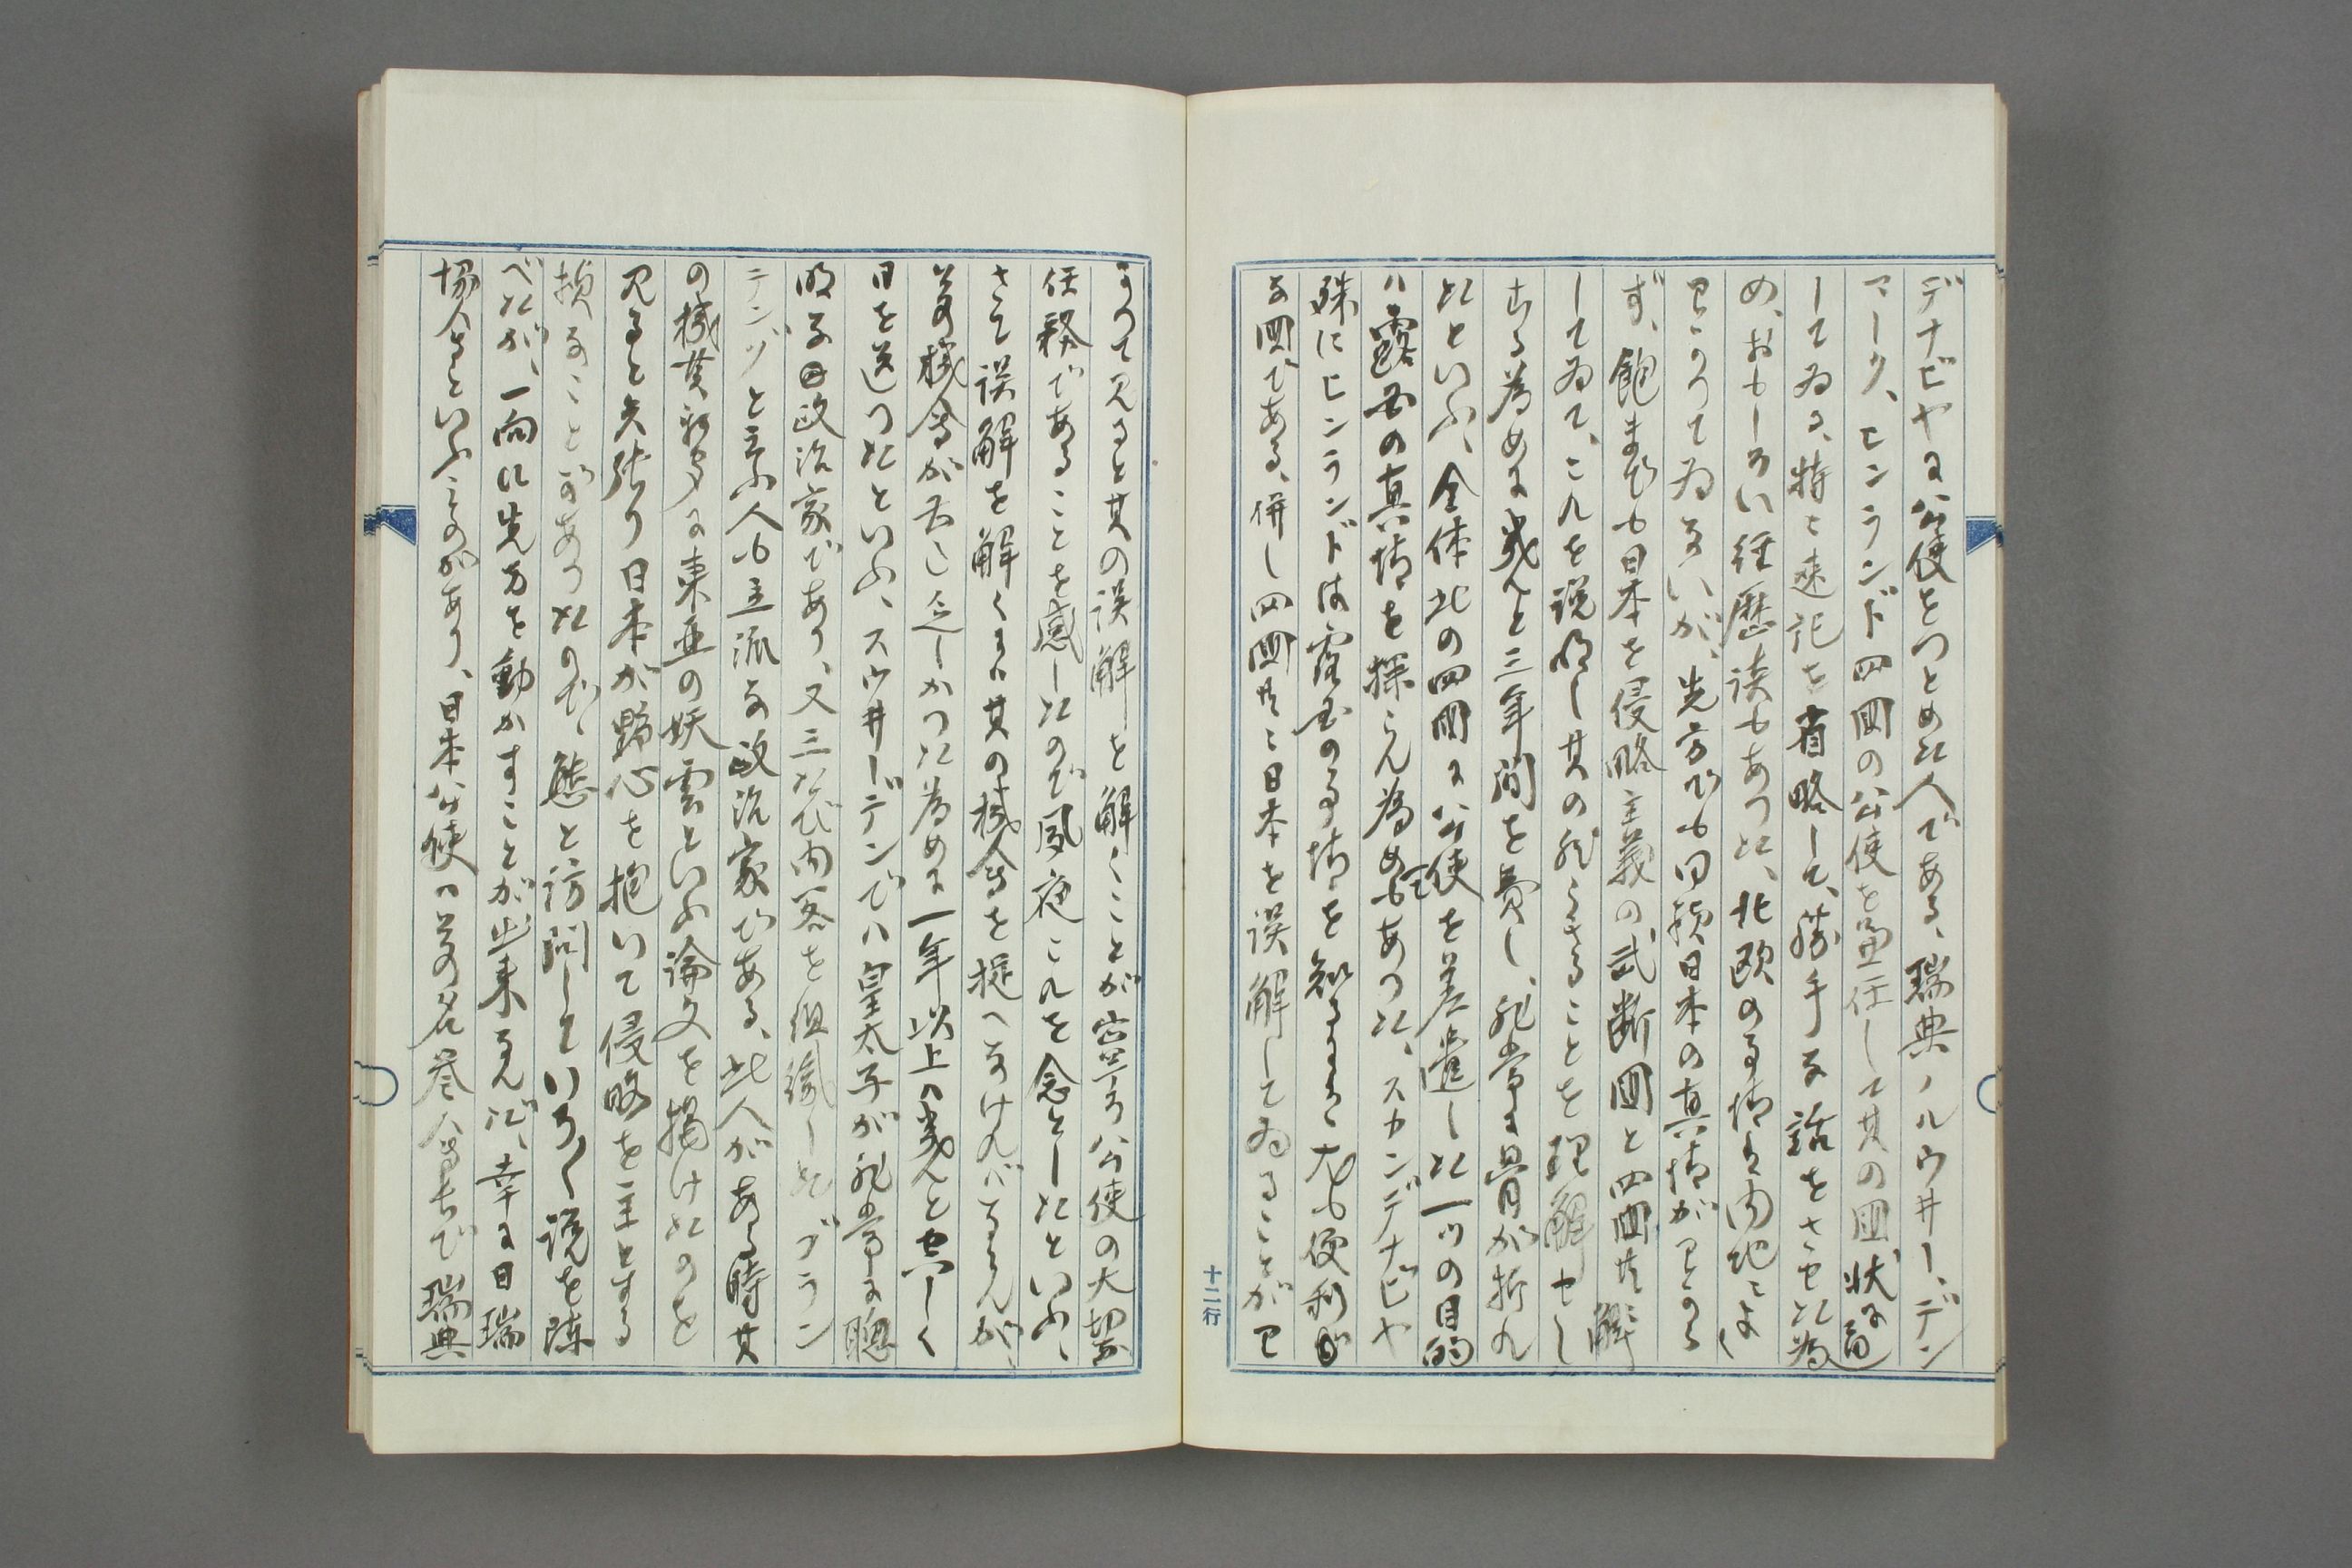 デナビヤに公使をつとめた人である、瑞典ノルウ井ー、デン
マーク、ヒンランド四国の公使を兼任して其の国状に通
してゐる、特に速記を省略して、勝手な話をさせた為
め、おもしろい経歴談もあつた、北欧の事情は内地によく
わかつてゐないが、先方でも同様日本の真情がわから
ず、飽まても日本を侵略主義の武断国と四国共解
してゐて、これを説明し其の然らざることを理解せし
むる為めに幾んと三年間を費し、非常に骨が折れ
たといふ、全体此の四国に公使を差遣した一つの目的
ハ露西の真情を探らん為めでもあつた、スカンデナビヤ
殊にヒンランドは露西の事情を知るには尤も便利が
な国である、併し四国共に日本を誤解してゐることがわ
かつて見ると其の誤解を解くことが寧ろ公使の大切
任務であることを感したので夙夜これを念としたといふ、
さて誤解を解くには其の機会を捉へなければならんが、
其の機会が無し、しかつた為めに一年以上ハ幾んと空しく
日を送つたといふ、スウ井ーデンでハ皇太子が非常に聡
明な政治家であり、又三たび内閣を組織した ブラン
テングと言ふ人も立派な政治家である、此人がある時其
の機関新聞に東亜の妖雲といふ論文を掲けたのを
見ると矢張り日本が野心を抱いて侵略を主とする
様なことがあつたので、態と訪問していろ〱説を陳
べたが、一向に先方を動かすことが出来なんだ、幸に日瑞
協会といふものがあり、日本公使ハ其の名誉会長で瑞典
十二行